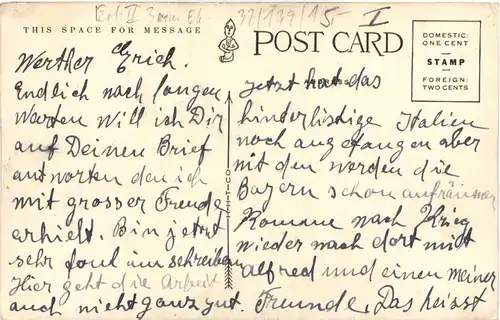 Erh. II 32/139/15,- I
THIS SPACE FOR MESSAGE
POST CARD
DOMESTIC:
ONE CENT
STAMP
FOREIGN:
TWO CENTS
Werther Erich.
Endlich nach langen
Warten will ich Dir
auf Deinen Brief
antworten den ich
mit grosser Freude
erhielt. Bin jetzt
sehr foul um schreiben
Hier geht die Arbeit
auch nicht ganz gut.
jetzt hat das
hinterlistige Italien
noch angefangen aber
mit den werden die
Bayern schon aufräumen
Komme nach Krieg
wieder nach dort mit
Alfred und einen meiner
Freunde, Das heisst